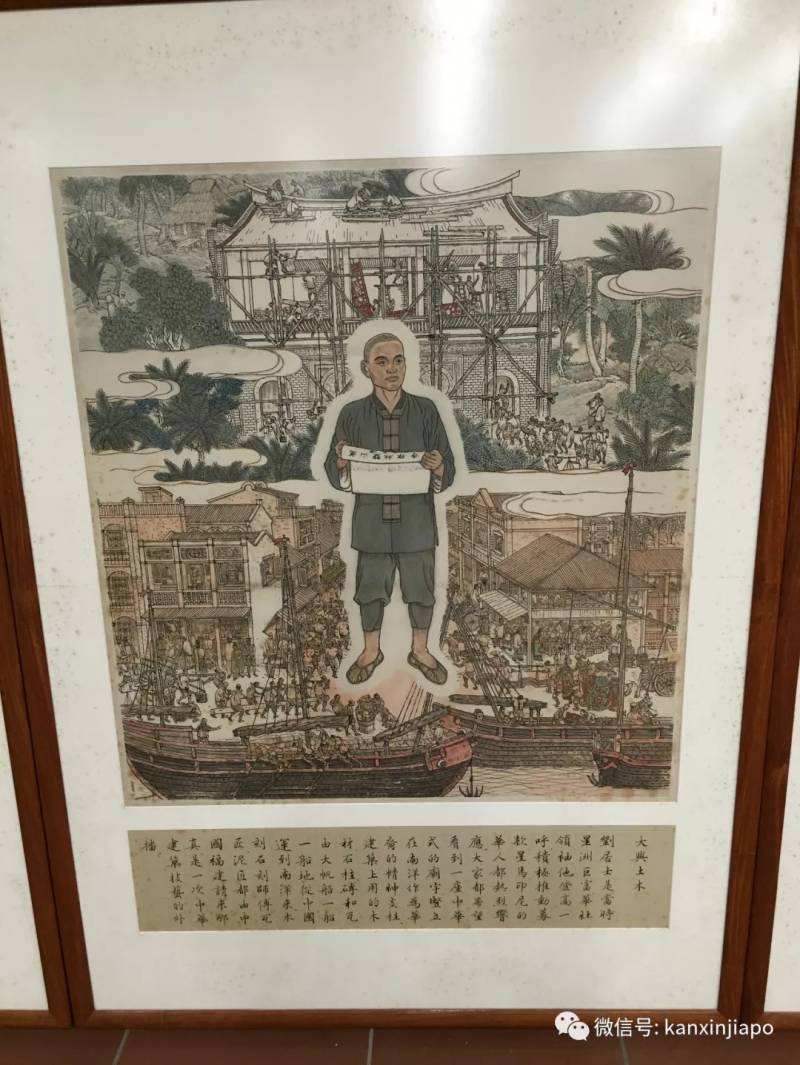 蓮山雙林寺
大興土木
劉居士是當時
星洲巨富華社
領袖他登高一
呼積極推動募
款星馬印尼的
華人都熱烈響
應大家都希望
看到一座中華
式的廟宇豎立
在南洋作為華
裔的精神支柱
建築上用的木
材石柱磚和瓦
由大帆船一船
一船地從中國
運到南洋來木
刻石刻師傅瓦
匠泥匠都由中
國福建請來那
真是一次中華
建築技藝的外
播
微信号: kanxinjiapo